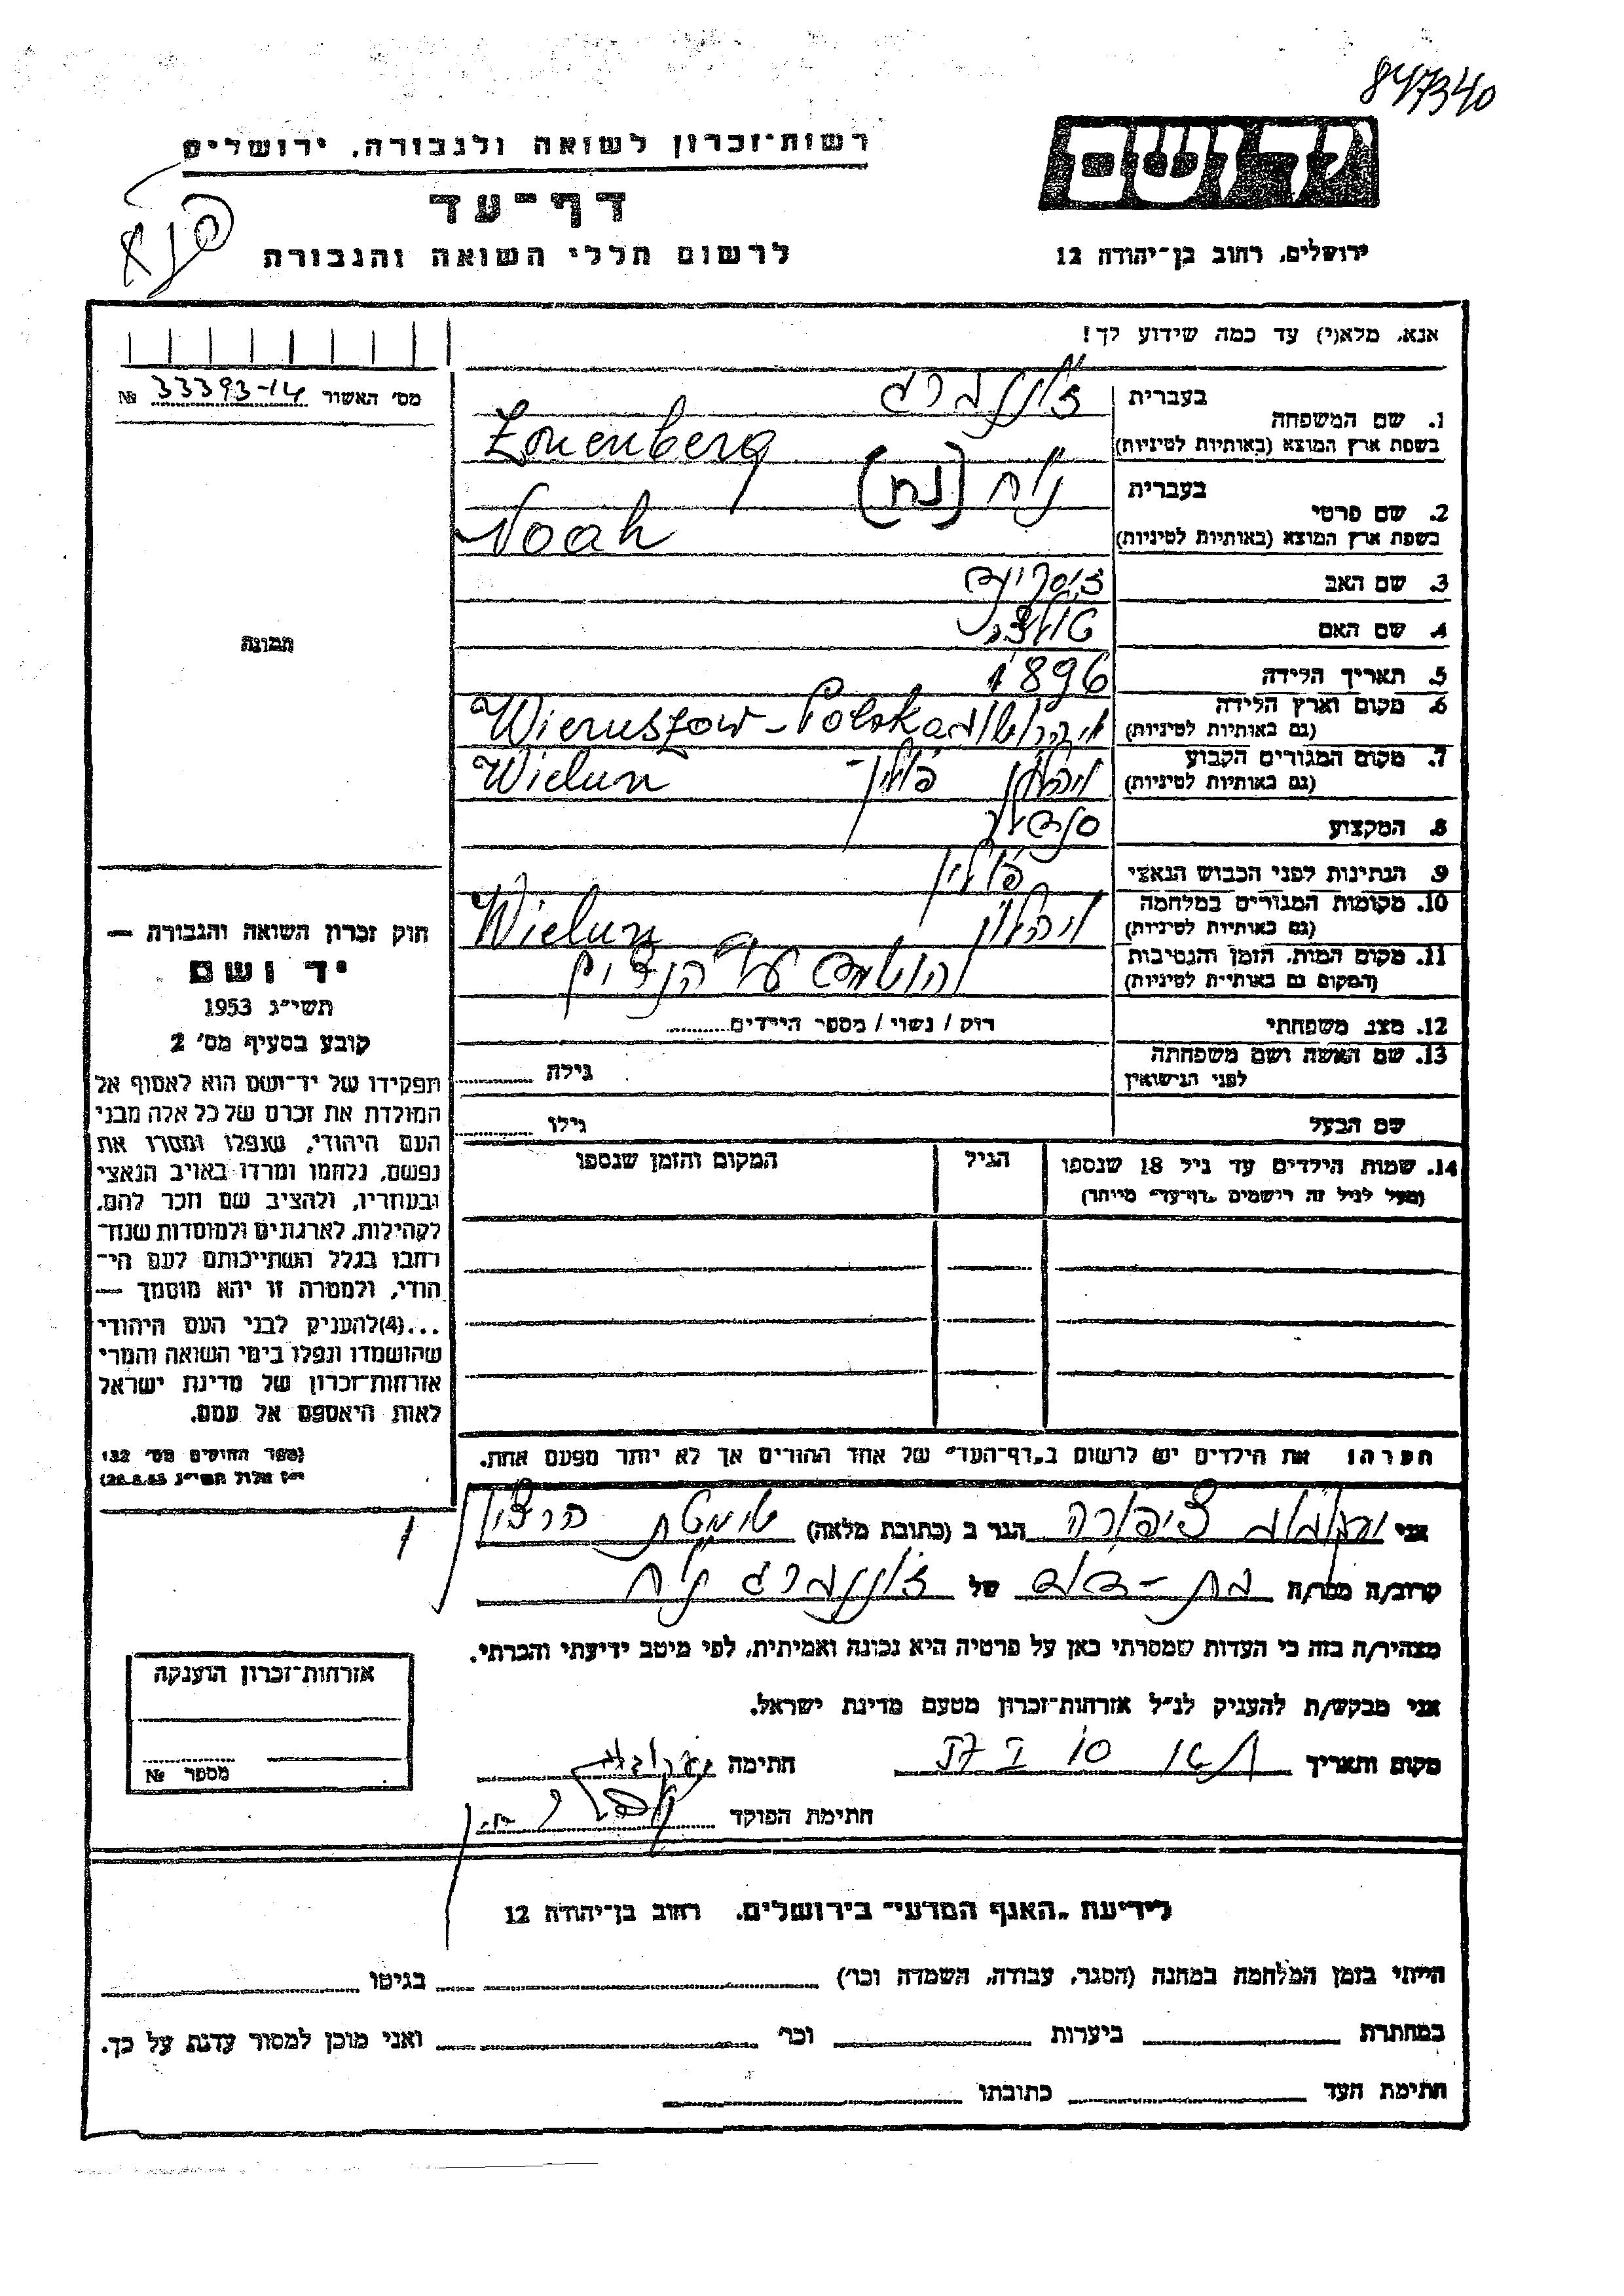 847340
רשות־זכרון לשואה ולגבורה, ירושלים
יד ושם
דף־עד
לרשום חללי השואה והגבורה
ירושלים, רחוב בן־יהודה 12
אנא, מלא(י) עד כמה שידוע לך!
מס׳ האשור 33393-14 №
1. שם המשפחה
בעברית
בשפת ארץ המוצא (באותיות לטיניות)
Zonenberg
2. שם פרטי
בעברית (נח)
בשפת ארץ המוצא (באותיות לטיניות)
Noah
3. שם האב
4. שם האם
תמונה
5. תאריך הלידה 1896
6. מקום וארץ הלידה
(גם באותיות לטיניות)
Wieruszow - Polska
7. מקום המגורים הקבוע
(גם באותיות לטיניות)
פולין Wielun
8. המקצוע סנדלר
9. הנתינות לפני הכבוש הנאצי פולין
10. מקומות המגורים במלחמה
(גם באותיות לטיניות)
Wielun
11. מקום המות, הזמן והנסיבות
(המקום גם באותיות לטיניות)
12. מצב משפחתי רוק / נשוי / מספר הילדים
13. שם האשה ושם משפחתה
לפני הנישואין
גילה
שם הבעל גילו
14. שמות הילדים עד גיל 18 שנספו הגיל המקום והזמן שנספו
(מעל לגיל זה רישמים „דף־עד״ מיוחד)
חוק זכרון השואה והגבורה —
יד ושם
תשי״ג 1953
קובע בסעיף מס׳ 2
תפקידו של יד־ושם הוא לאסוף אל
המולדת את זכרם של כל אלה מבני
העם היהודי, שנפלו ומסרו את
נפשם, נלחמו ומרדו באויב הנאצי
ובעוזריו, ולהציב שם וזכר להם,
לקהילות, לארגונים ולמוסדות שנח־
רבו בגלל השתייכותם לעם הי־
הודי, ולמטרה זו יהא מוסמך —
...(4)להעניק לבני העם היהודי
שהושמדו ונפלו בימי השואה והמרי
אזרחות־זכרון של מדינת ישראל
לאות היאספם אל עמם.
(ספר החוקים מס׳ 132
י״ז אלול תשי״ג 28.8.53)
הערה: את הילדים יש לרשום ב„דף־העד״ של אחד ההורים אך לא יותר מפעם אחת.
אני ציפורה הגר ב (כתובת מלאה)
קרוב/ה מכר/ה בת-דוד של זוננברג
מצהיר/ה בזה כי העדות שמסרתי כאן על פרטיה היא נכונה ואמיתית, לפי מיטב ידיעתי והכרתי.
אני מבקש/ת להעניק לנ״ל אזרחות־זכרון מטעם מדינת ישראל.
מקום ותאריך חתימה
חתימת הפוקד
אזרחות־זכרון הוענקה
מספר №
לידיעת „האגף המדעי״ בירושלים, רחוב בן־יהודה 12
הייתי בזמן המלחמה במחנה (הסגר, עבודה, השמדה וכו׳) בגיטו
במחתרת ביערות וכו׳ ואני מוכן למסור עדות על כך.
חתימת העד כתובתו